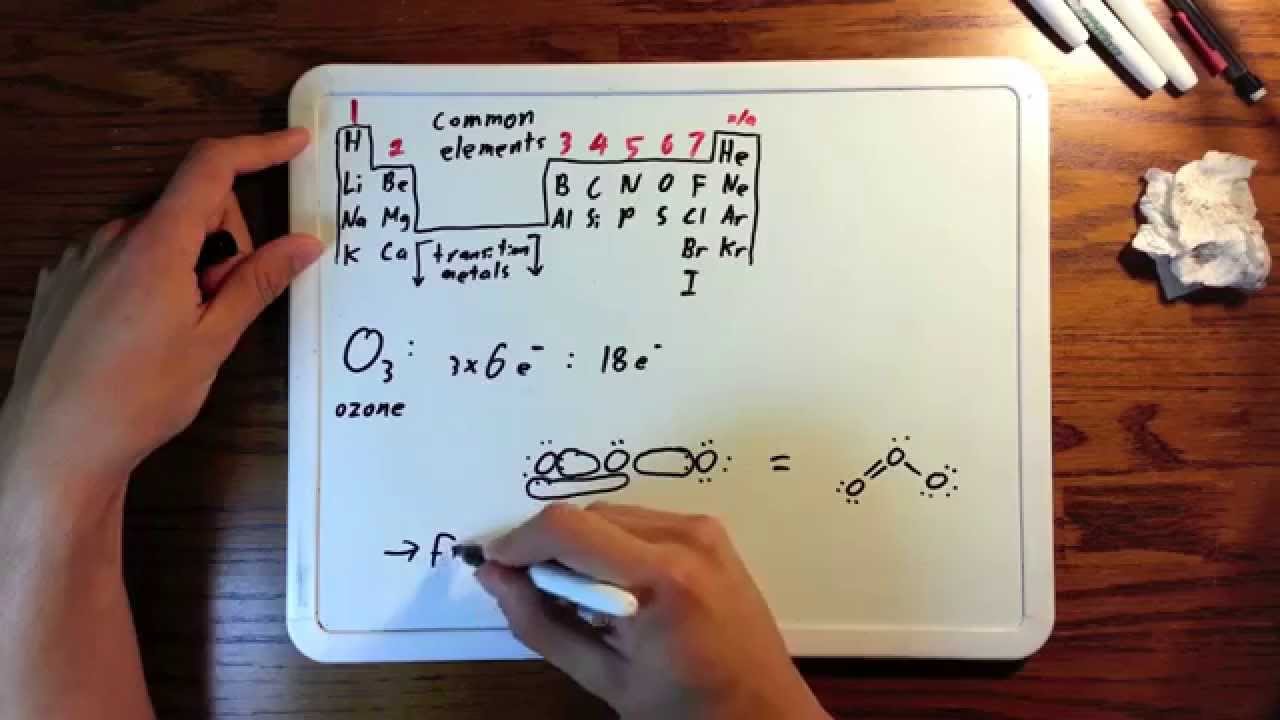 1
H 2 common elements 3 4 5 6 7 n/a He
Li Be B C N O F Ne
Na Mg Al Si P S Cl Ar
K Ca transition metals Br Kr
I
O3: 3x6e- : 18e-
ozone
:O O O: = O
O O
→ F